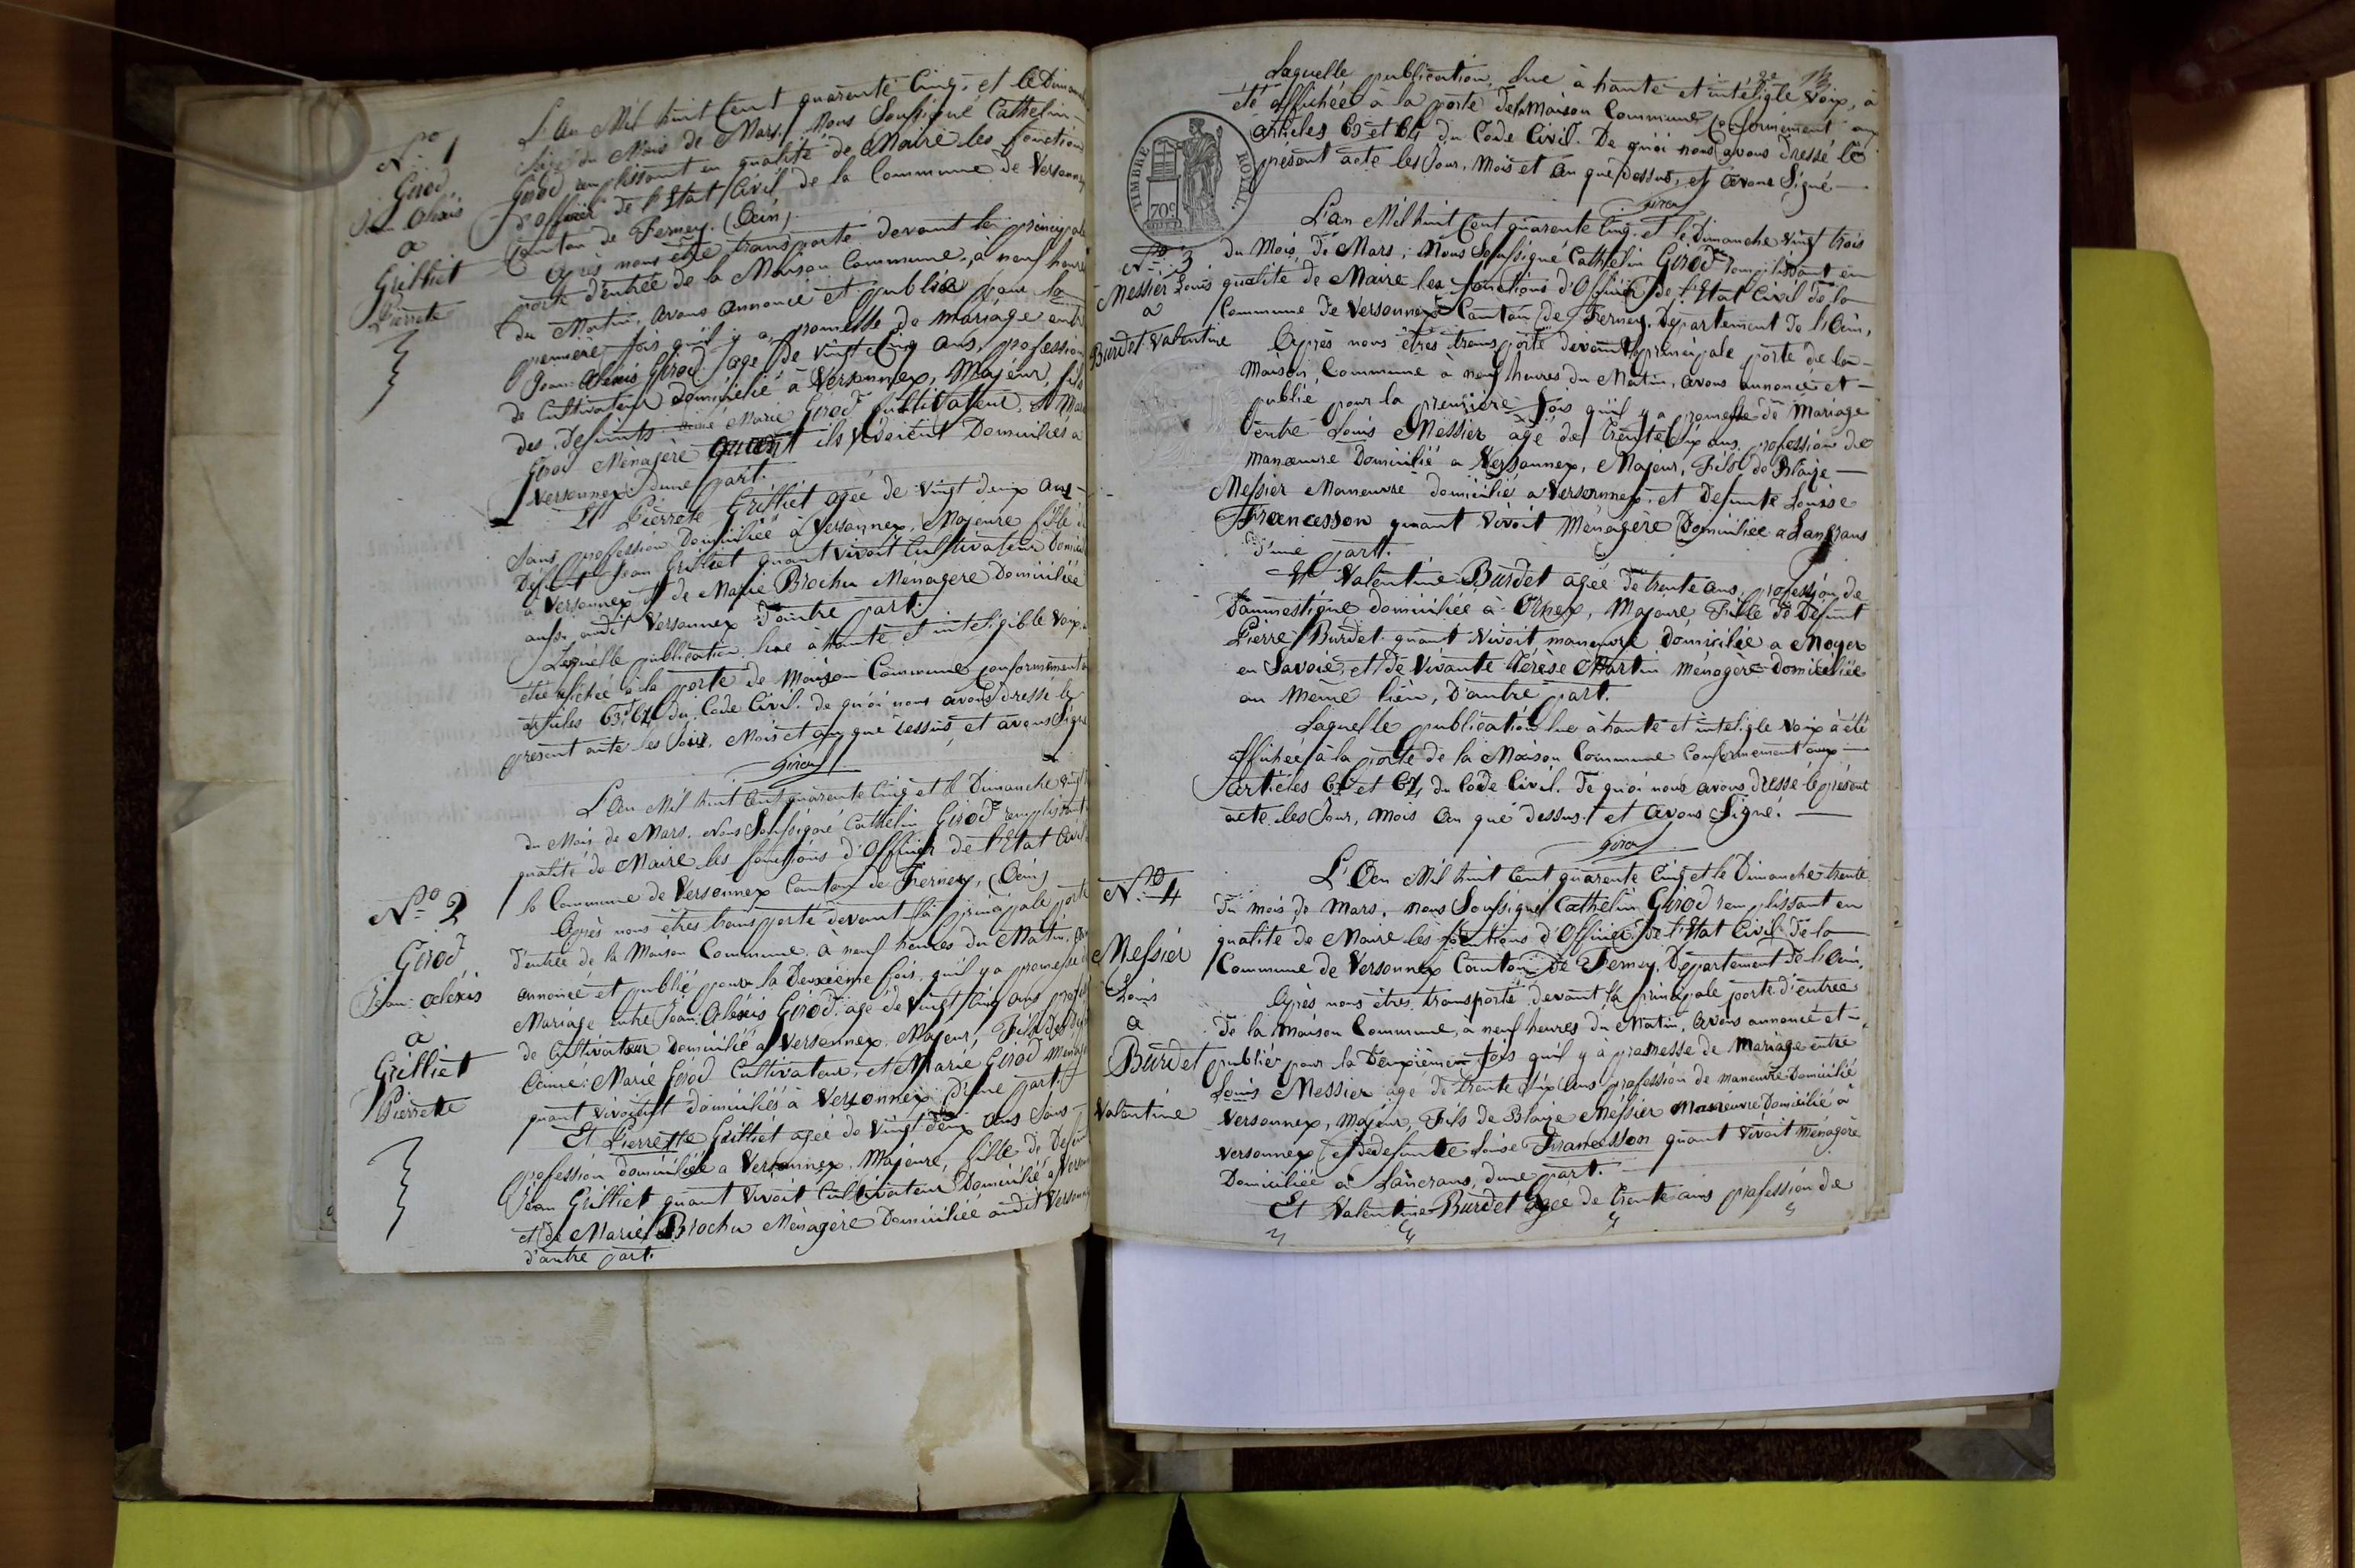 N.º 1
Girod
Jean Alexis
a
Grilliet
Pierrete
L'An Mil huit Cent quarante Cinq, et le Dimanche
du Mois de Mars, Nous Soussigné Cathelin
Girod remplissant en qualité de Maire les fonctions
d'officier de l'Etat Civil de la Commune de Versonnex
Canton de Ferney. (Ain).
Après nous être transporté devant la principale
porte d'entrée de la Maison Commune, à neuf heures
du Matin, avons annoncé et publié pour la
première fois qu'il y a promesse de mariage entre
Jean Alexis Girod agé de vingt Cinq ans, profession
de Cultivateur Domicilié à Versonnex, Majeur, fils
des defunts Aimé Marie Girod Cultivateur, et Marie
Girod Ménagère quant ils vivoient Domiciliés à
Versonnex d'une part.
Et Pierrete Grilliet agée de vingt deux ans
Sans profession Domiciliée à Versonnex, Majeure fille de
Defunt Jean Grilliet quant vivoit Cultivateur Domicilié
à Versonnex et de Marie Brochu Ménagere Domiciliée
aussi audit Versonnex D'autre part.
Laquelle publication lue à haute et inteligible Voix, a
étée afichée à la porte de Maison Commune conformément aux
articles 63 et 64 du Code Civil. de quoi nous avons dressé le
présent acte les Jour, Mois et an que dessus, et avons Signé
Girod
N.º 2
Girod
Jean: Alexis
à
Grilliet
Pierrette
L'An Mil huit Cent quarante Cinq et le Dimanche vingt
du Mois de Mars. Nous Soussigné Cathelin Girod remplissant
qualité de Maire les fonctions d'Officier de l'Etat Civil
la Commune de Versonnex Canton de Ferney, (Ain)
Après nous êtres transporté devant la principale porte
d'entrée de la Maison Commune, à neuf heures du Matin,
annoncé et publié pour la Deuxième fois, qu'il y a promesse de
Mariage entre Jean Alexis Girod, agé de vingt Cinq ans
de Cultivateur Domicilié a Versonnex, Majeur, Fils des
Aimé: Marie Girod Cultivateur, et Marie Girod
quant vivoient domiciliés à Versonnex D'une part.
Et Pierrette Grilliet agée de vingt deux ans Sans
profession domiciliée a Versonnex, Majeure, fille de Defunt
Jean Grilliet quant vivoit Cultivateur Domicilié à Versonnex
et de Marie Brochu Ménagère Domiciliée audit Versonnex
d'autre part.
Laquelle publication, lue à haute et intéligle Voix, a
été affichée à la porte de la Maison Commune, Conformément aux
articles 63 et 64 du Code Civil. De quoi nous avons Dressé le
présent acte les Jour, Mois et An que dessus, et avons Signé
Girod
TIMBRE ROYAL
70c
N.º 3
Messier Louis
a
Burdet Valentine
L'an Mil huit Cent quarante Cinq, et le Dimanche vingt trois
du Mois, de Mars; Nous Soussigné Cathelin Girod remplissant en
qualité de Maire les fonctions d'Officier de l'Etat Civil de la
Commune de Versonnex Canton de Ferney, Département de l'Ain,
Après nous êtres transporté devant la principale porte de la
Maison Commune à neuf heures du Matin, avons annoncé et
publié pour la première Fois qu'il y a promesse de Mariage
entre Louis Messier agé de trente Six ans, profession de
manœuvre Domicilié a Versonnex, Majeur, Fils de Blaize
Messier Maneuvre domicilié a Versonnex, et Defunte Louise
Francesson quant Vivoit Ménagère Domiciliée a Lancrans
d'une part.
Et Valentine Burdet agée de trente ans, profession de
Dommestique domiciliée à Ornex, Majeure, Fille de Defunt
Pierre Burdet quant Vivoit maneuvre domicilié a Moyer
en Savoie, et de vivante Térèse Martin Ménagère domiciliée
au même lieu, D'autre part.
Laquelle publication lue à haute et inteligle voix à été
affichée à la porte de la Maison Commune Conformement aux
articles 63 et 64 du Code Civil. De quoi nous avons Dressé le présent
acte les Jour, Mois An que dessus et avons Signé.
Girod
N.º 4
Messier
Louis
a
Burdet
Valentine
L'An Mil huit Cent quarante Cinq et le Dimanche trente
du mois de Mars, nous Soussigné Cathelin Girod remplissant en
qualité de Maire les fonctions d'Officier de l'Etat Civil de la
Commune de Versonnex Canton de Ferney, Département de l'Ain,
Après nous êtres transporté devant la principale porte d'entrée
de la Maison Commune, à neuf heures du Matin, avons annoncé et
publiér pour la Deuxièmem fois qu'il y à promesse de Mariage entre
Louis Messier agé de trente Six ans profession de maneuvre Domicilié
Versonnex, Majeur, Fils de Blaize Messier Maneuvre Domicilié à
Versonnex et de defunte Louise Francesson quant Vivoit ménagère
Domiciliée à Lancrans, d'une part.
Et Valentine Burdet agée de trente ans profession de